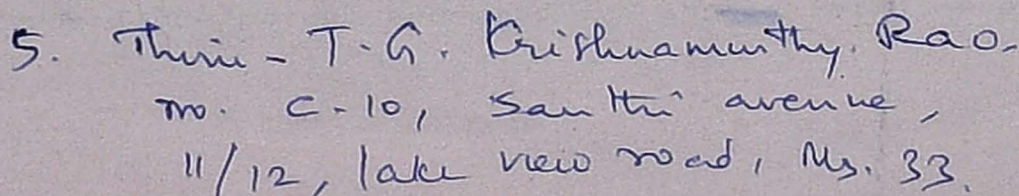 5. Thiru - T. G. Krishnamurthy. Rao.
no. C-10, Santhi avenue,
11/12, lake view road, Ms. 33.